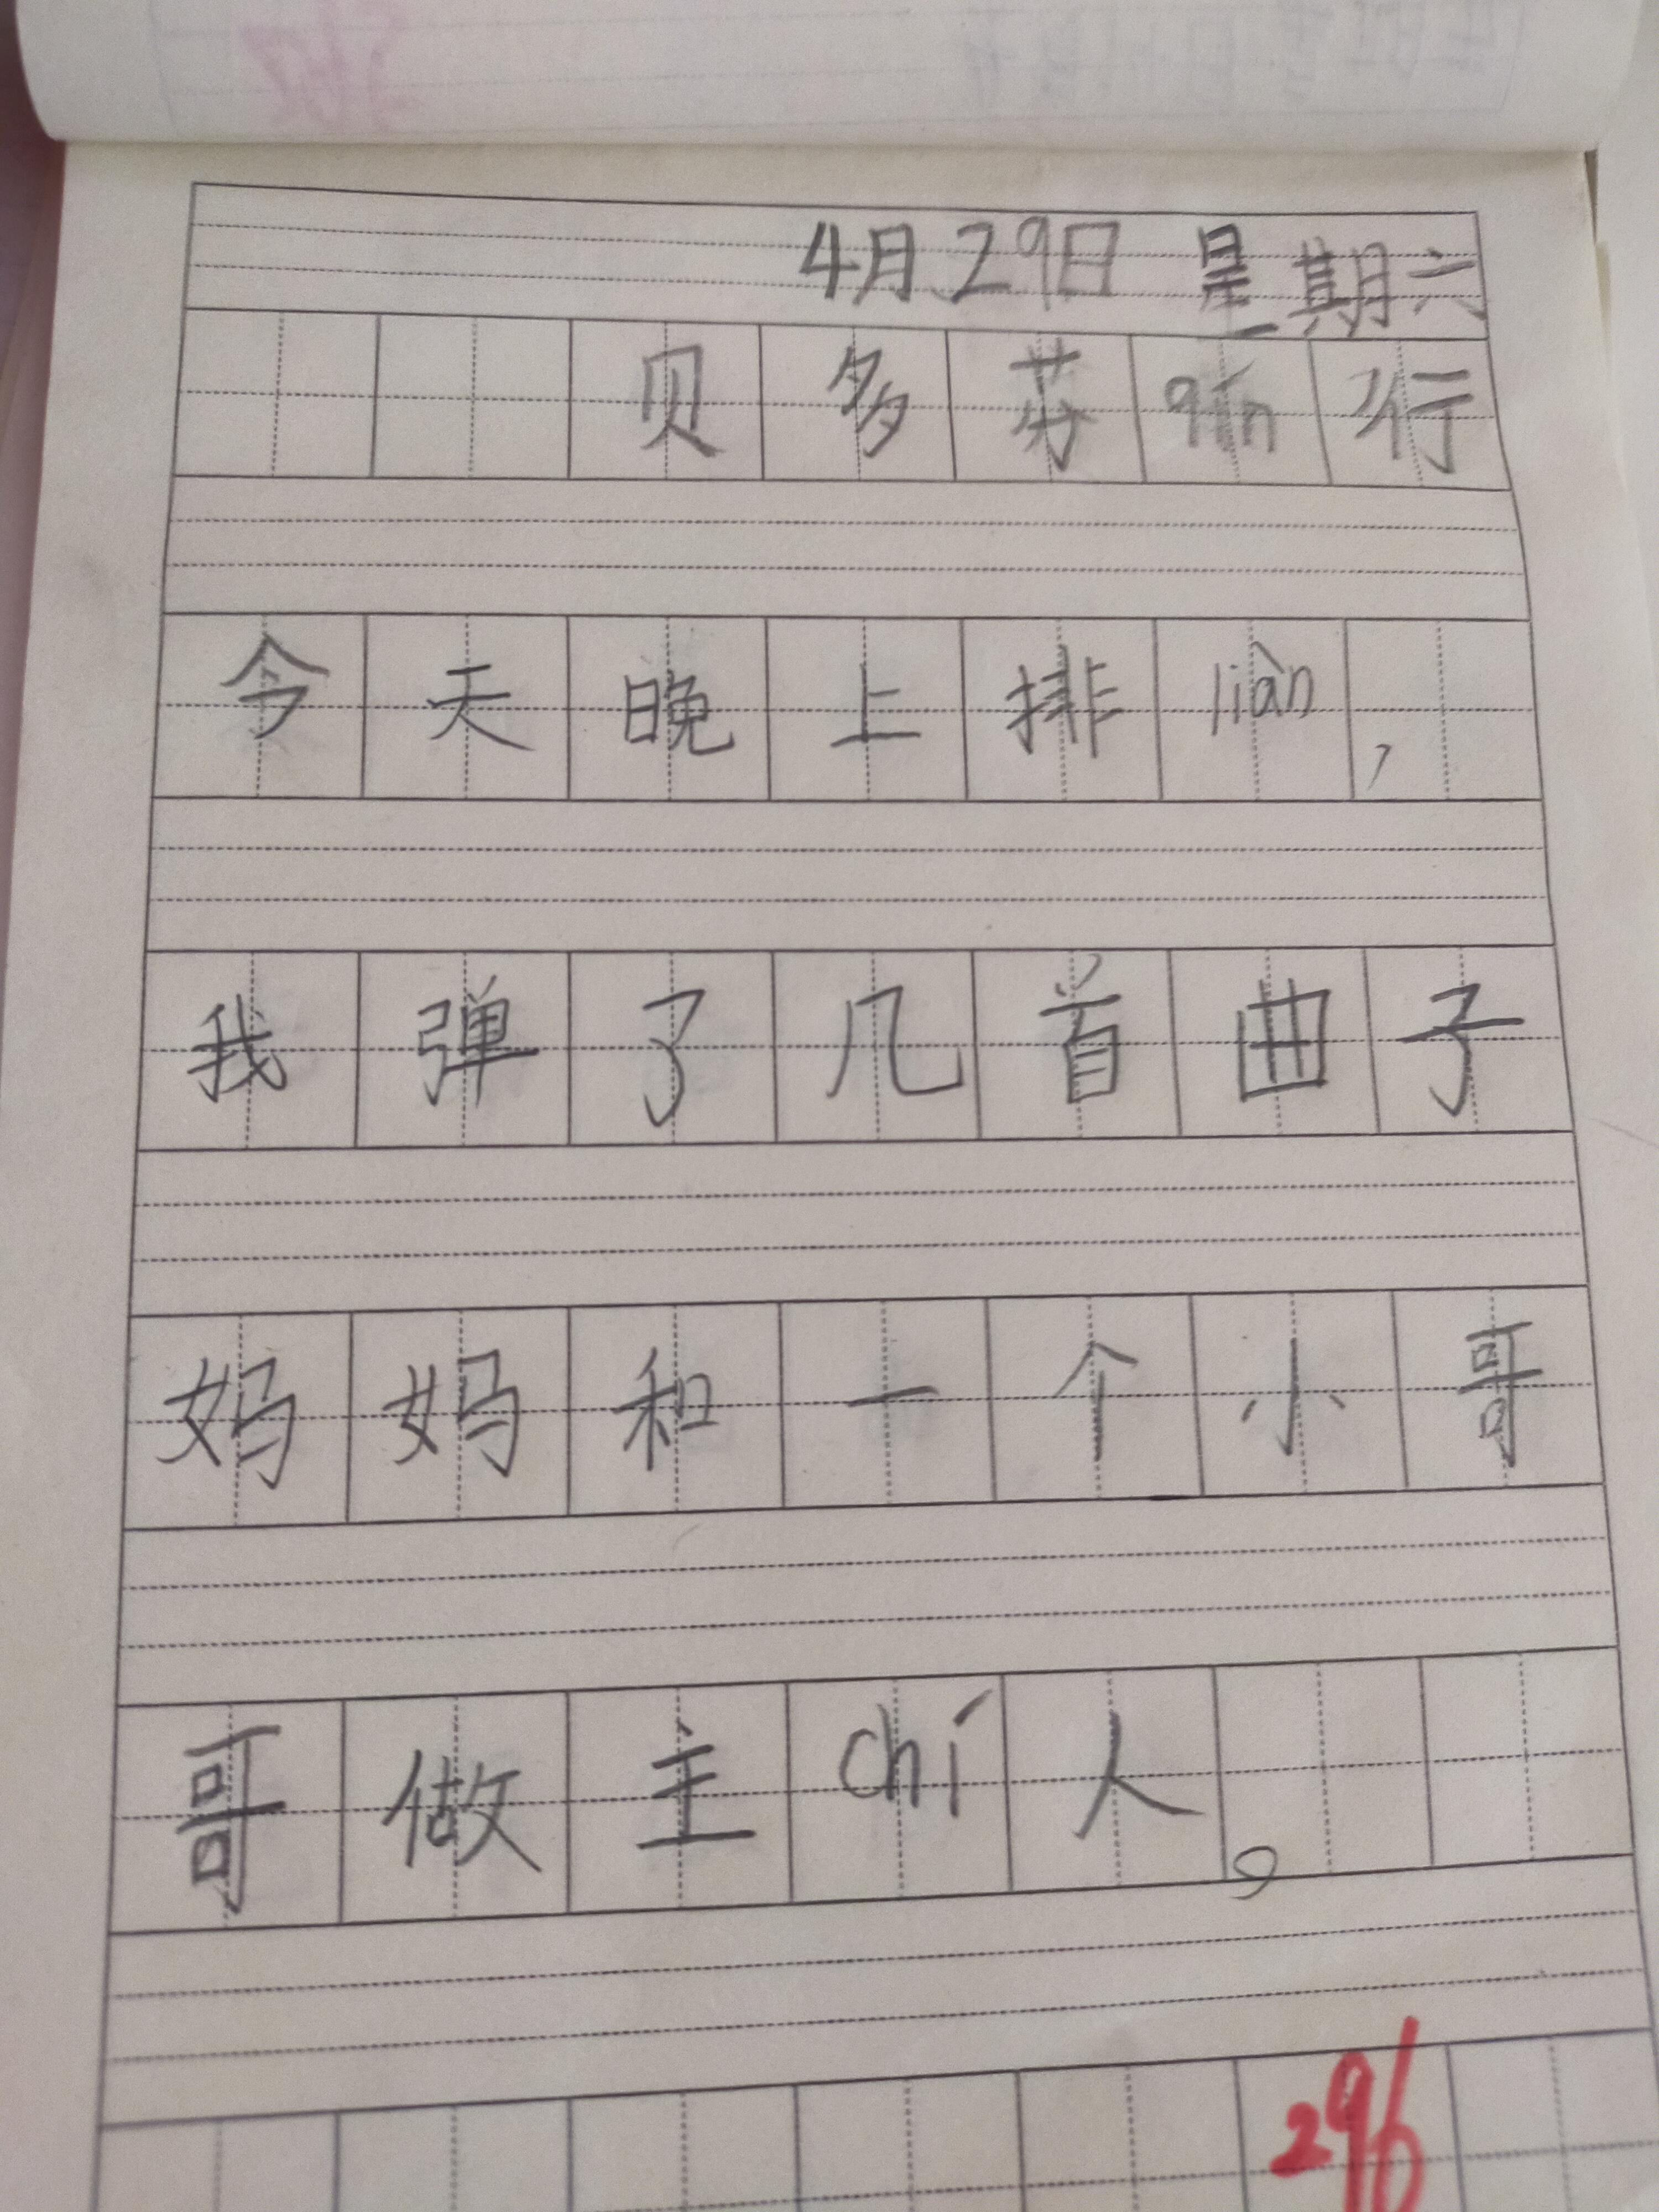 4月29日 星期六
贝多芬qín行
今天晚上排liàn,
我弹了几首曲子
妈妈和一个小哥
哥做主chí人。
296